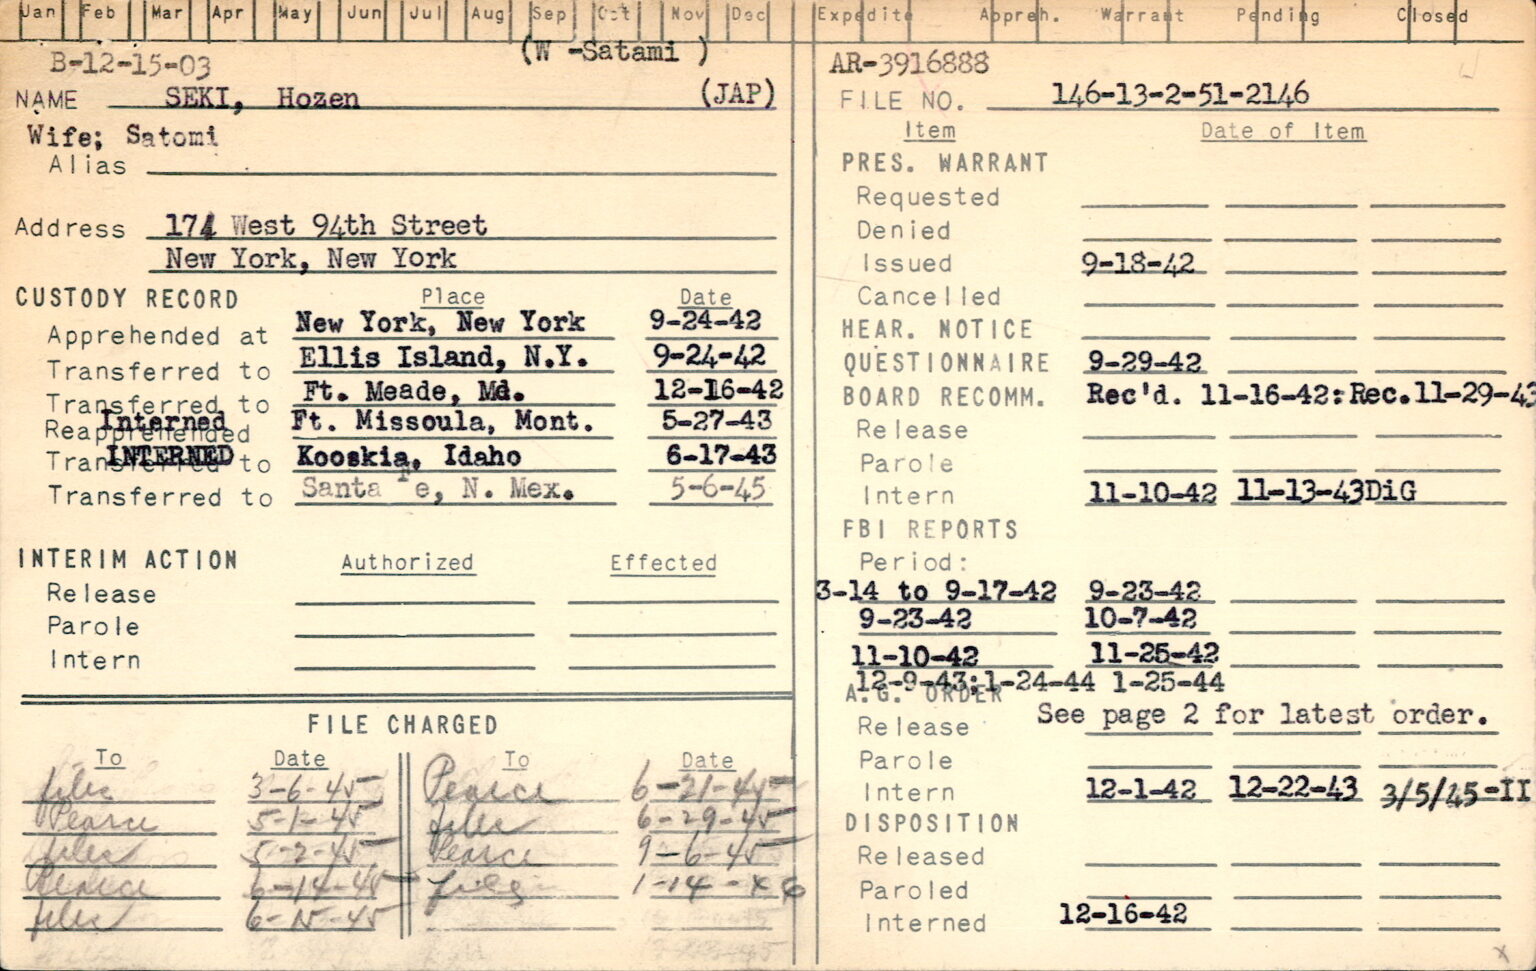 Jan Feb Mar Apr May Jun Jul Aug Sep Oct Nov Dec Expedite Appreh. Warrant Pending Closed
(W -Satami )
B-12-15-03
NAME SEKI, Hozen (JAP)
Wife; Satomi
Alias
Address 174 West 94th Street
New York, New York
CUSTODY RECORD Place Date
Apprehended at New York, New York 9-24-42
Transferred to Ellis Island, N.Y. 9-24-42
Transferred to Ft. Meade, Md. 12-16-42
Interned
Reapprehended Ft. Missoula, Mont. 5-27-43
INTERNED
Transferred to Kooskia, Idaho 6-17-43
Transferred to Santa Fe, N. Mex. 5-6-45
INTERIM ACTION Authorized Effected
Release
Parole
Intern
FILE CHARGED
To Date To Date
files 3-6-45 Pearce 6-21-45
Pearce 5-1-45 files 6-29-45
files 5-2-45 Pearce 9-6-45
Pearce 6-14-45 files 1-14-46
files 6-15-45
AR-3916888
FILE NO. 146-13-2-51-2146
Item Date of Item
PRES. WARRANT
Requested
Denied
Issued 9-18-42
Cancelled
HEAR. NOTICE
QUESTIONNAIRE 9-29-42
BOARD RECOMM. Rec'd. 11-16-42:Rec.11-29-43
Release
Parole
Intern 11-10-42 11-13-43DiG
FBI REPORTS
Period:
3-14 to 9-17-42 9-23-42
9-23-42 10-7-42
11-10-42 11-25-42
12-9-43;1-24-44 1-25-44
A.G. ORDER
Release See page 2 for latest order.
Parole
Intern 12-1-42 12-22-43 3/5/45-II
DISPOSITION
Released
Paroled
Interned 12-16-42